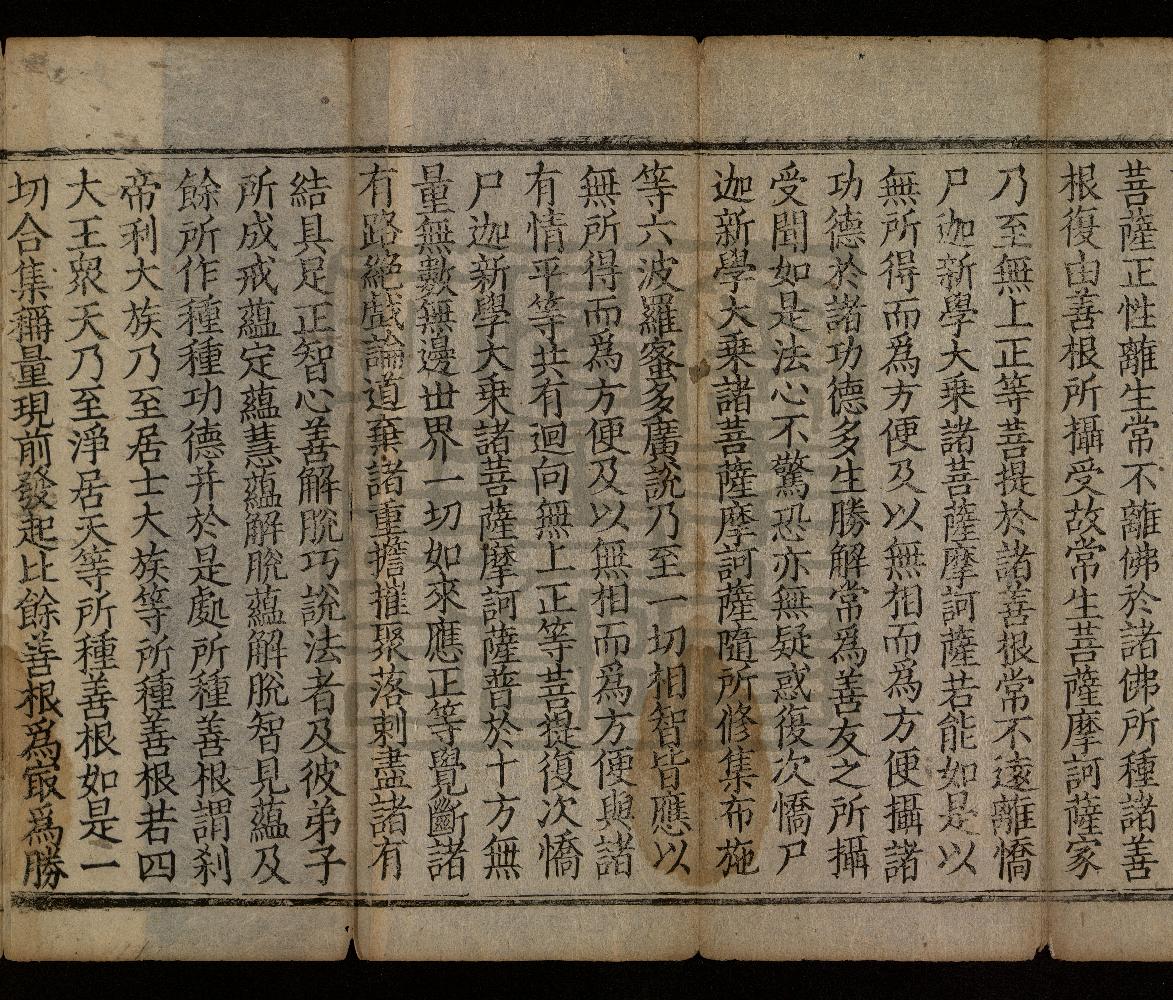 菩薩正性離生常不離佛於諸佛所種諸善
根復由善根所攝受故常生菩薩摩訶薩家
乃至無上正等菩提於諸善根常不遠離憍
尸迦新學大乗諸菩薩摩訶薩若能如是以
無所得而爲方便及以無相而爲方便攝諸
功德於諸功德多生勝解常爲善友之所攝
受聞如是法心不驚恐亦無疑惑復次憍尸
迦新學大乗諸菩薩摩訶薩隨所修集布施
等六波羅蜜多廣說乃至一切相智皆應以
無所得而爲方便及以無相而爲方便與諸
有情平等共有迴向無上正等菩提復次憍
尸迦新學大乗諸菩薩摩訶薩普於十方無
量無數無邊世界一切如來應正等覺斷諸
有路絕戲論道棄諸重擔摧聚落刺盡諸有
結具足正智心善解脫巧說法者及彼弟子
所成戒蘊定蘊慧蘊解脫蘊解脫智見蘊及
餘所作種種功德并於是處所種善根謂刹
帝利大族乃至居士大族等所種善根若四
大王衆天乃至淨居天等所種善根如是一
切合集稱量現前發起比餘善根爲㝡爲勝